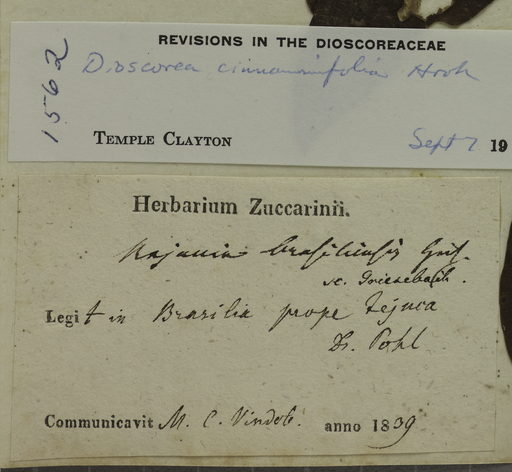 REVISIONS IN THE DIOSCOREACEAE
1562
Dioscorea cinnamomifolia Hook
TEMPLE CLAYTON
Sept 7 19
Herbarium Zuccarinii.
Rajania brasiliensis Gris.
sc. Griesebach.
Legit in Brasilia prope Tejuca
Dr. Pohl
Communicavit M. C. Vindob. anno 1839